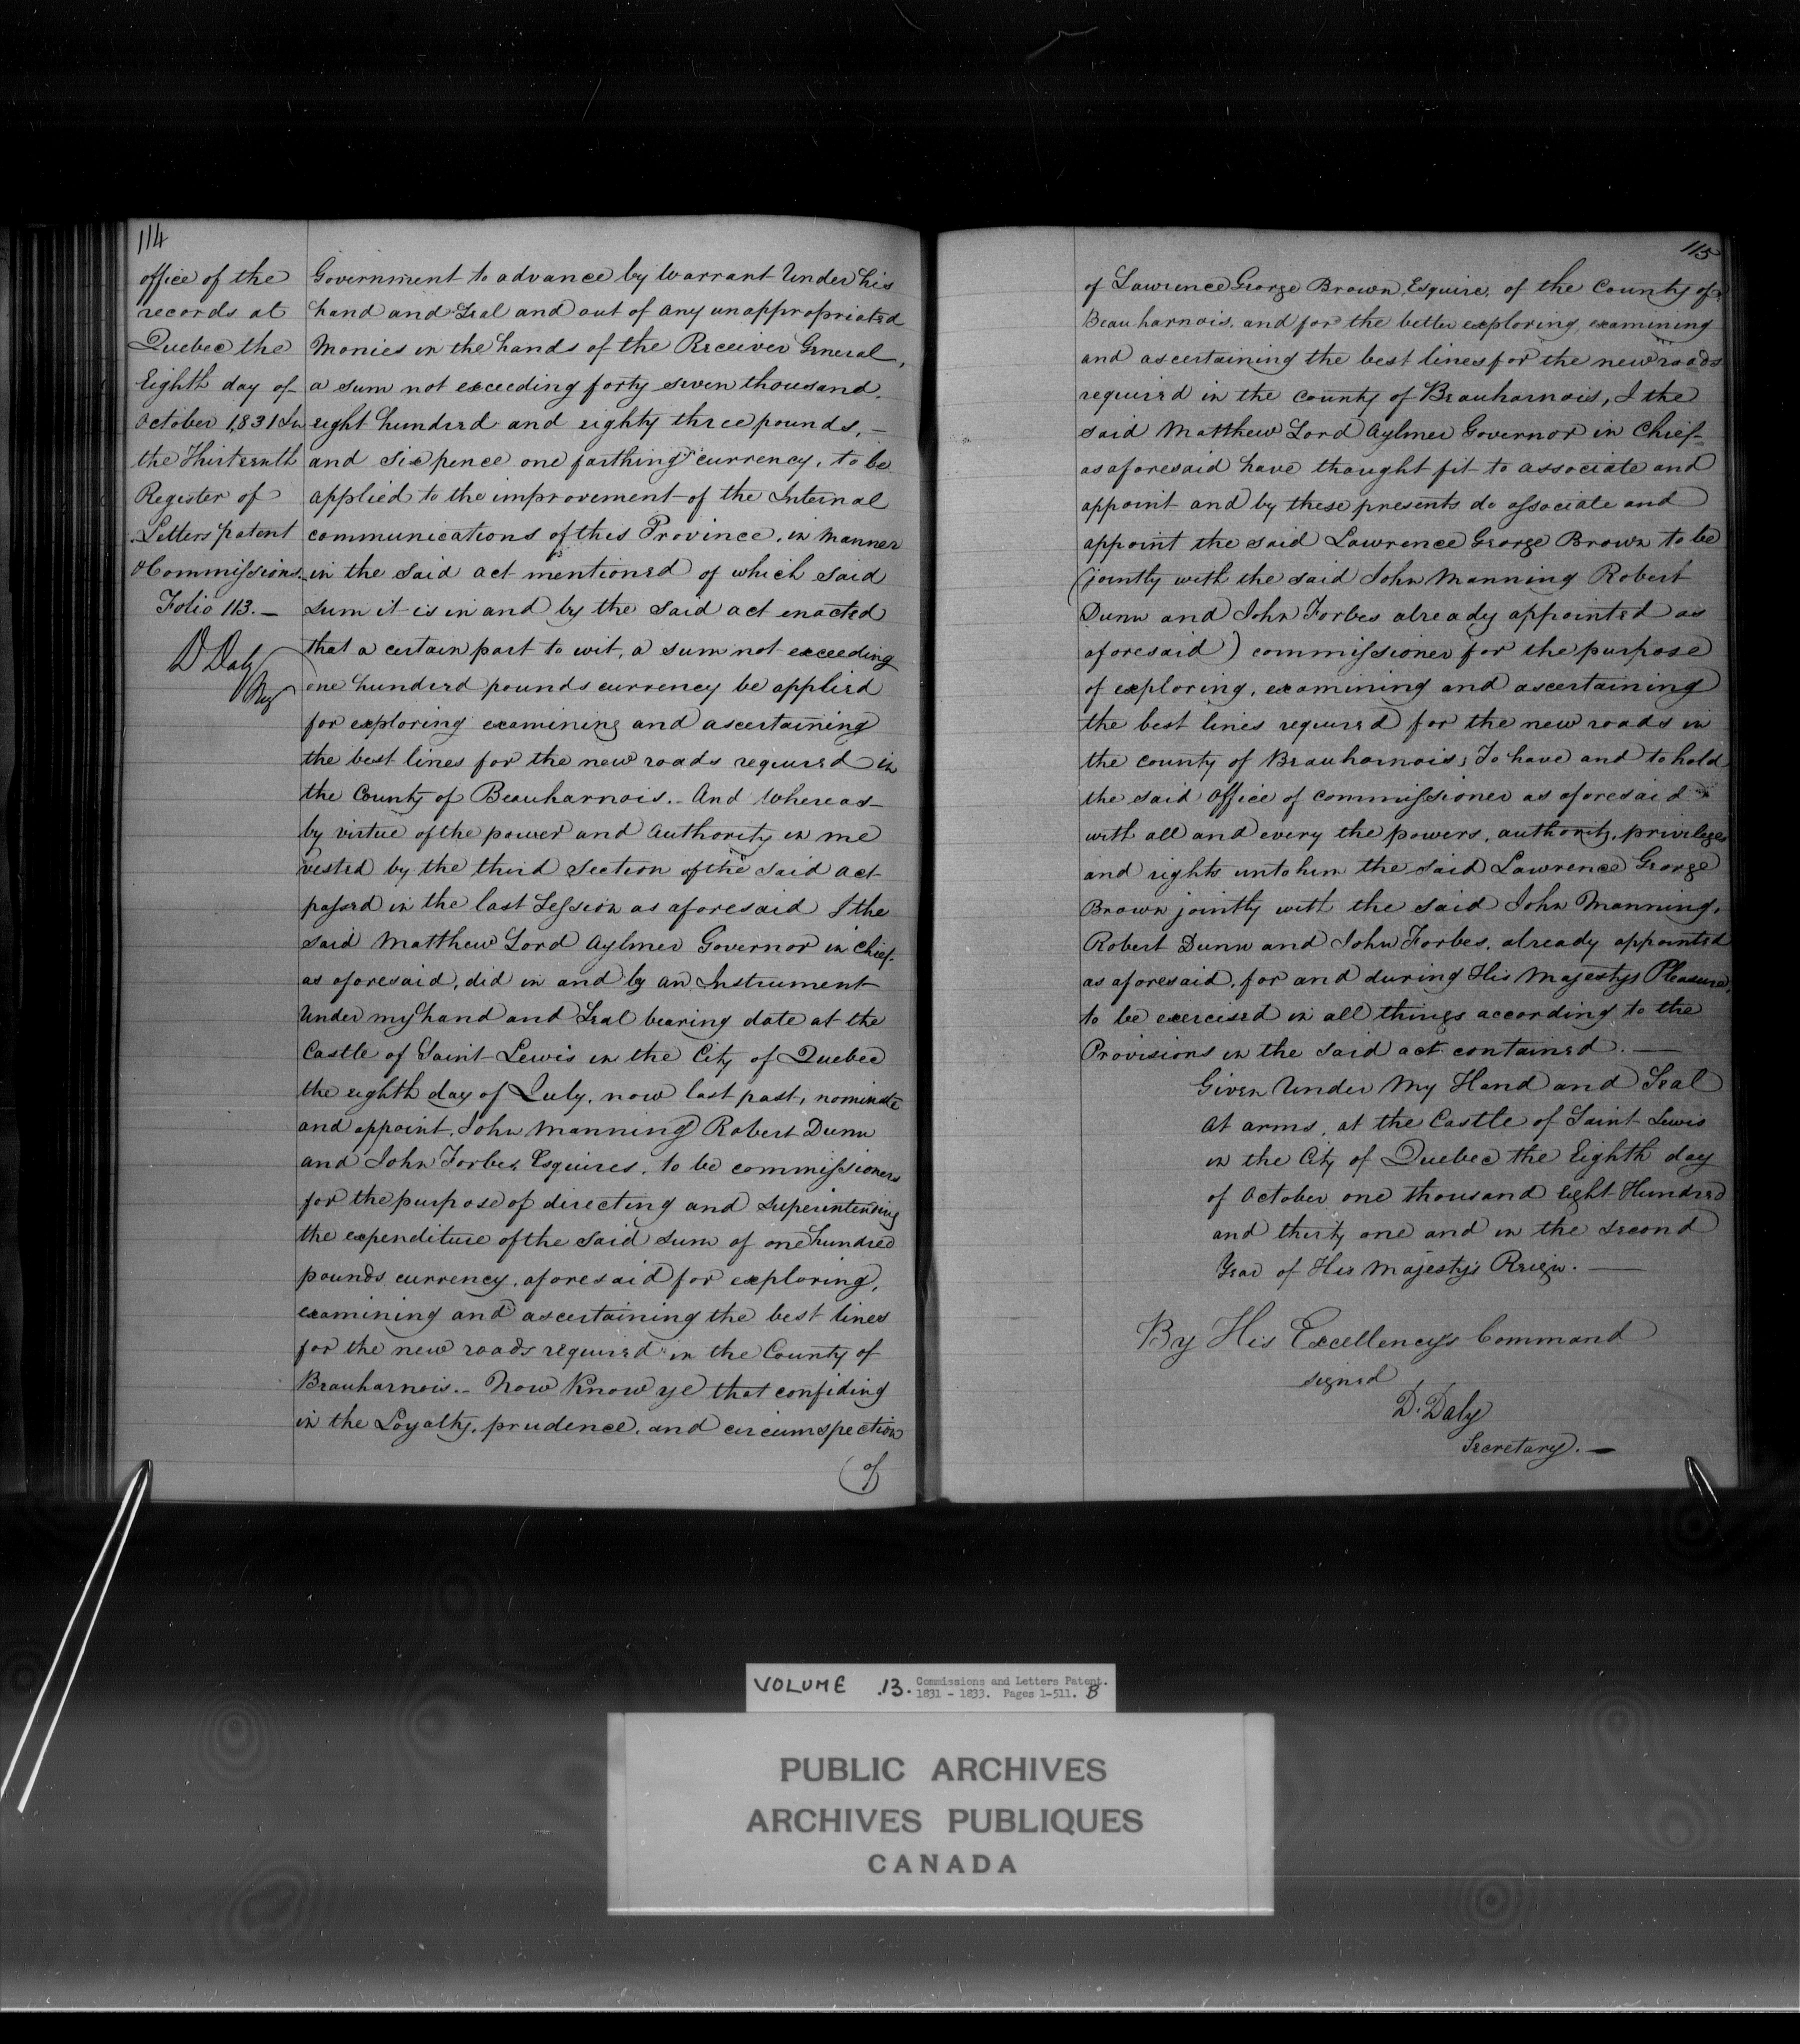 114
office of the
records at
Quebec the
Eighth day of
October 1831 In
the Thirteenth
Register of
Letters patent
& Commissions.
Folio 113. —
D Daly
Reg
Government to advance by Warrant Under his
hand and Seal and out of any unappropriated
Monies in the hands of the Receiver General,
a sum not exceeding forty seven thousand,
eight hundred and eighty three pounds, —
and Six pence one farthing currency, to be
applied to the improvement of the Internal
communications of this Province, in Manner
in the Said act mentioned of which Said
sum it is in and by the Said act enacted
that a certain part to wit, a sum not exceeding
one hundred pounds currency be applied
for exploring examining and ascertaining
the best lines for the new roads required in
the County of Beauharnois. - And Whereas
by virtue of the power and Authority in me
vested by the third Section of the Said act
passed in the last Session as aforesaid I the
Said Matthew Lord Aylmer Governor in Chief
as aforesaid, did in and by an Instrument
Under my hand and Seal bearing date at the
Castle of Saint Lewis in the City of Quebec
the eighth day of July, now last past, nominate
and appoint, John Manning Robert Dunn
and John Forbes, Esquires, to be commissioners
for the purpose of directing and Superintending
the expenditure of the Said Sum of one hundred
pounds currency, aforesaid for exploring,
examining and ascertaining the best lines
for the new roads required in the County of
Beauharnois. - Now Know ye that confiding
in the Loyalty, prudence, and circumspection
(of
115
of Lawrence George Brown, Esquire, of the County of
Beauharnois, and for the better exploring, examining
and ascertaining the best lines for the new roads
required in the County of Beauharnois, I the
said Matthew Lord Aylmer Governor in Chief
as aforesaid have thought fit to associate and
appoint and by these presents do associate and
appoint the said Lawrence George Brown to be
(jointly with the said John Manning Robert
Dunn and John Forbes already appointed as
aforesaid) commissioner for the purpose
of exploring, examining and ascertaining
the best lines required for the new roads in
the county of Beauharnois; To have and to hold
the said Office of Commissioner as aforesaid
with all and every the powers, authority, privileges
and rights unto him the said Lawrence George
Brown jointly with the said John Manning,
Robert Dunn and John Forbes, already appointed
as aforesaid, for and during His Majestys Pleasure,
to be exercised in all things according to the
Provisions in the Said act contained. —
Given Under My Hand and Seal
At arms, at the Castle of Saint Lewis
in the City of Quebec the Eighth day
of October one thousand Eight Hundred
and thirty one and in the second
Year of His Majesty's Reign. —
By His Excellency's Command
signed
D. Daly
Secretary. —
VOLUME .13. Commissions and Letters Patent.
1831 - 1833. Pages 1-511. B
PUBLIC ARCHIVES
ARCHIVES PUBLIQUES
CANADA